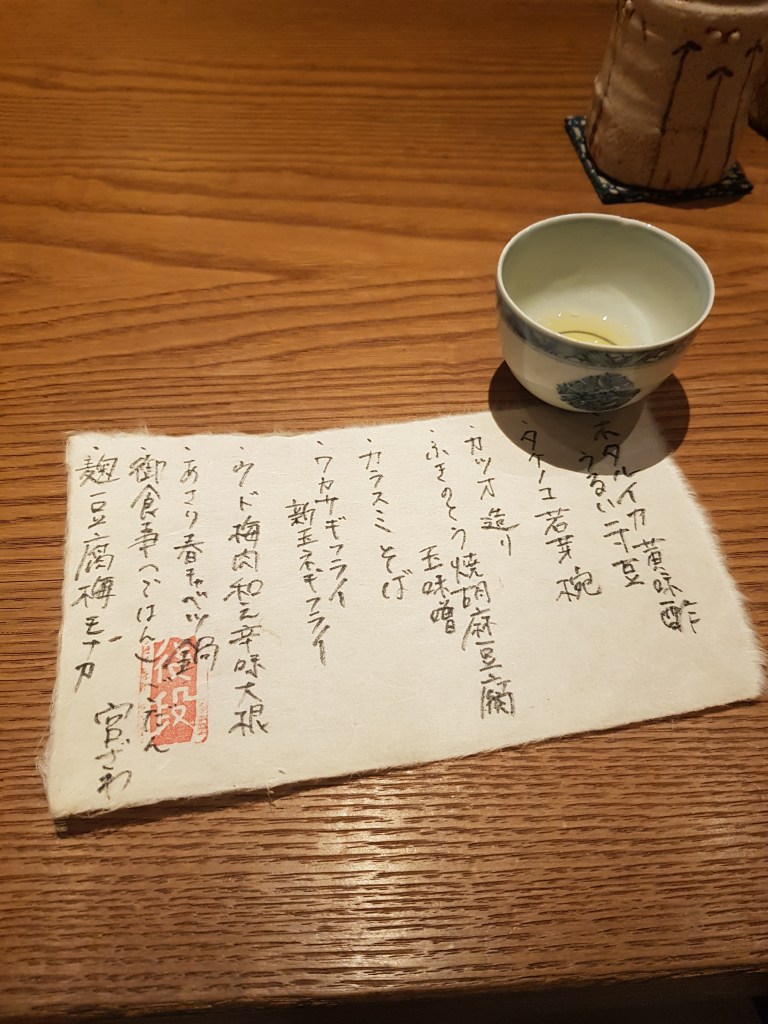 ・ホタルイカ 黄味酢
うるい 一寸豆
・タケノコ 若芽 椀
・カツオ 造り
・ふきのとう焼胡麻豆腐
玉味噌
・カラスミ そば
・ワカサギフライ
新玉ネギフライ
・ウド梅肉和え辛味大根
・あさり春キャベツ鍋
・御食事(ごはん)
・麹豆腐梅モナカ
ごだん
宮ざわ
後段